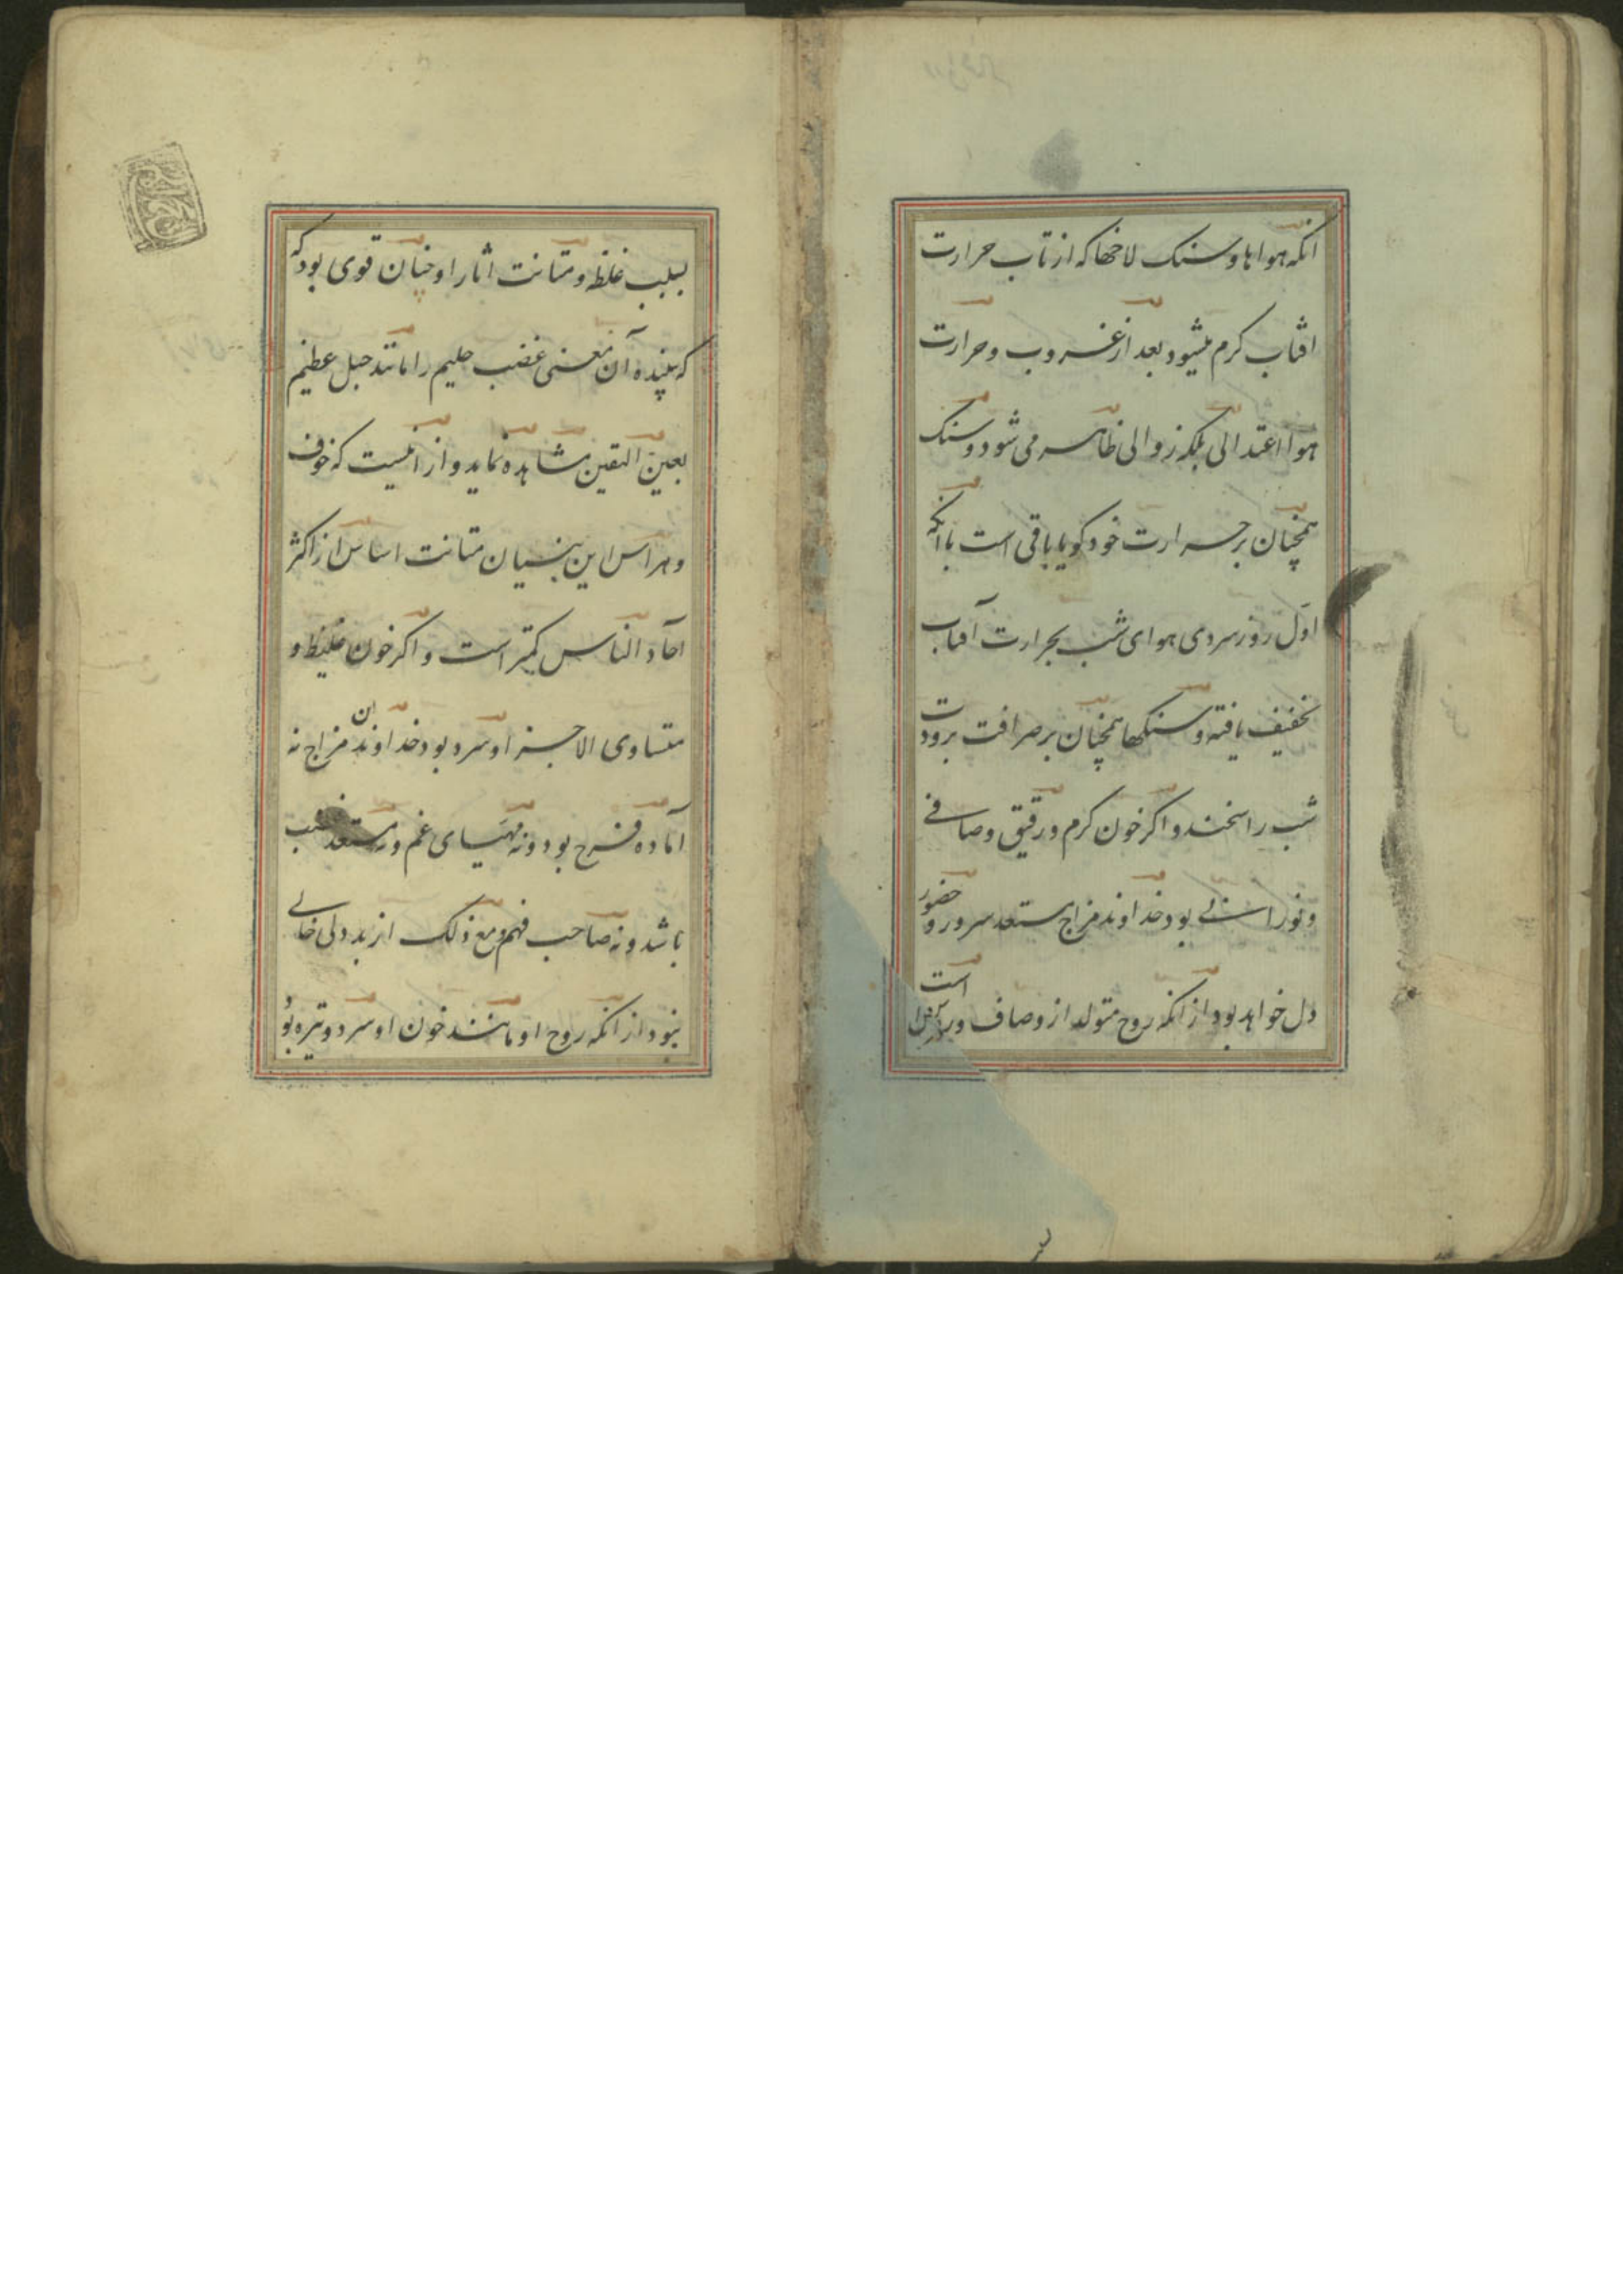 انکه هواها و سنک لاخها که از تاب حرارت
افتاب کرم میشود بعد از غروب و حرارت
هوا اعتدالی بلکه زوالی ظاهر می شود و سنک
همچنان بر حرارت خود کویا باقی است با آنکه
اول روز سردی هوای شب بحرارت آفتاب
تخفیف یافته و سنکها همچنان بر صرافت برودت
شب راسخند و اکر خون کرم و رقیق و صافی
و نورانی بود خداوند مزاج مستعد سرور و حضور
دل خواهد بود از آنکه روح متولد از و صاف و
است
بسبب غلظ و متانت اثار او چنان قوی بود که
که بیننده آن معنی غضب حلیم را مانند جبل عظیم
بعین الیقین مشاهده نماید و از انیست که خوف
و هراس این بنیان متانت اساس از اکثر
احاد الناس کمتر است و اکر خون غلیظ و
متساوی الاجزا و سرد بود خداوند ان مزاج نه
آماده فرح بود و نه مهیای غم و نه مستعد غضب
باشد و نه صاحب فهم و مع ذلک از بددلی خالی
نبود از انکه روح او مانند خون او سرد و تیره بو